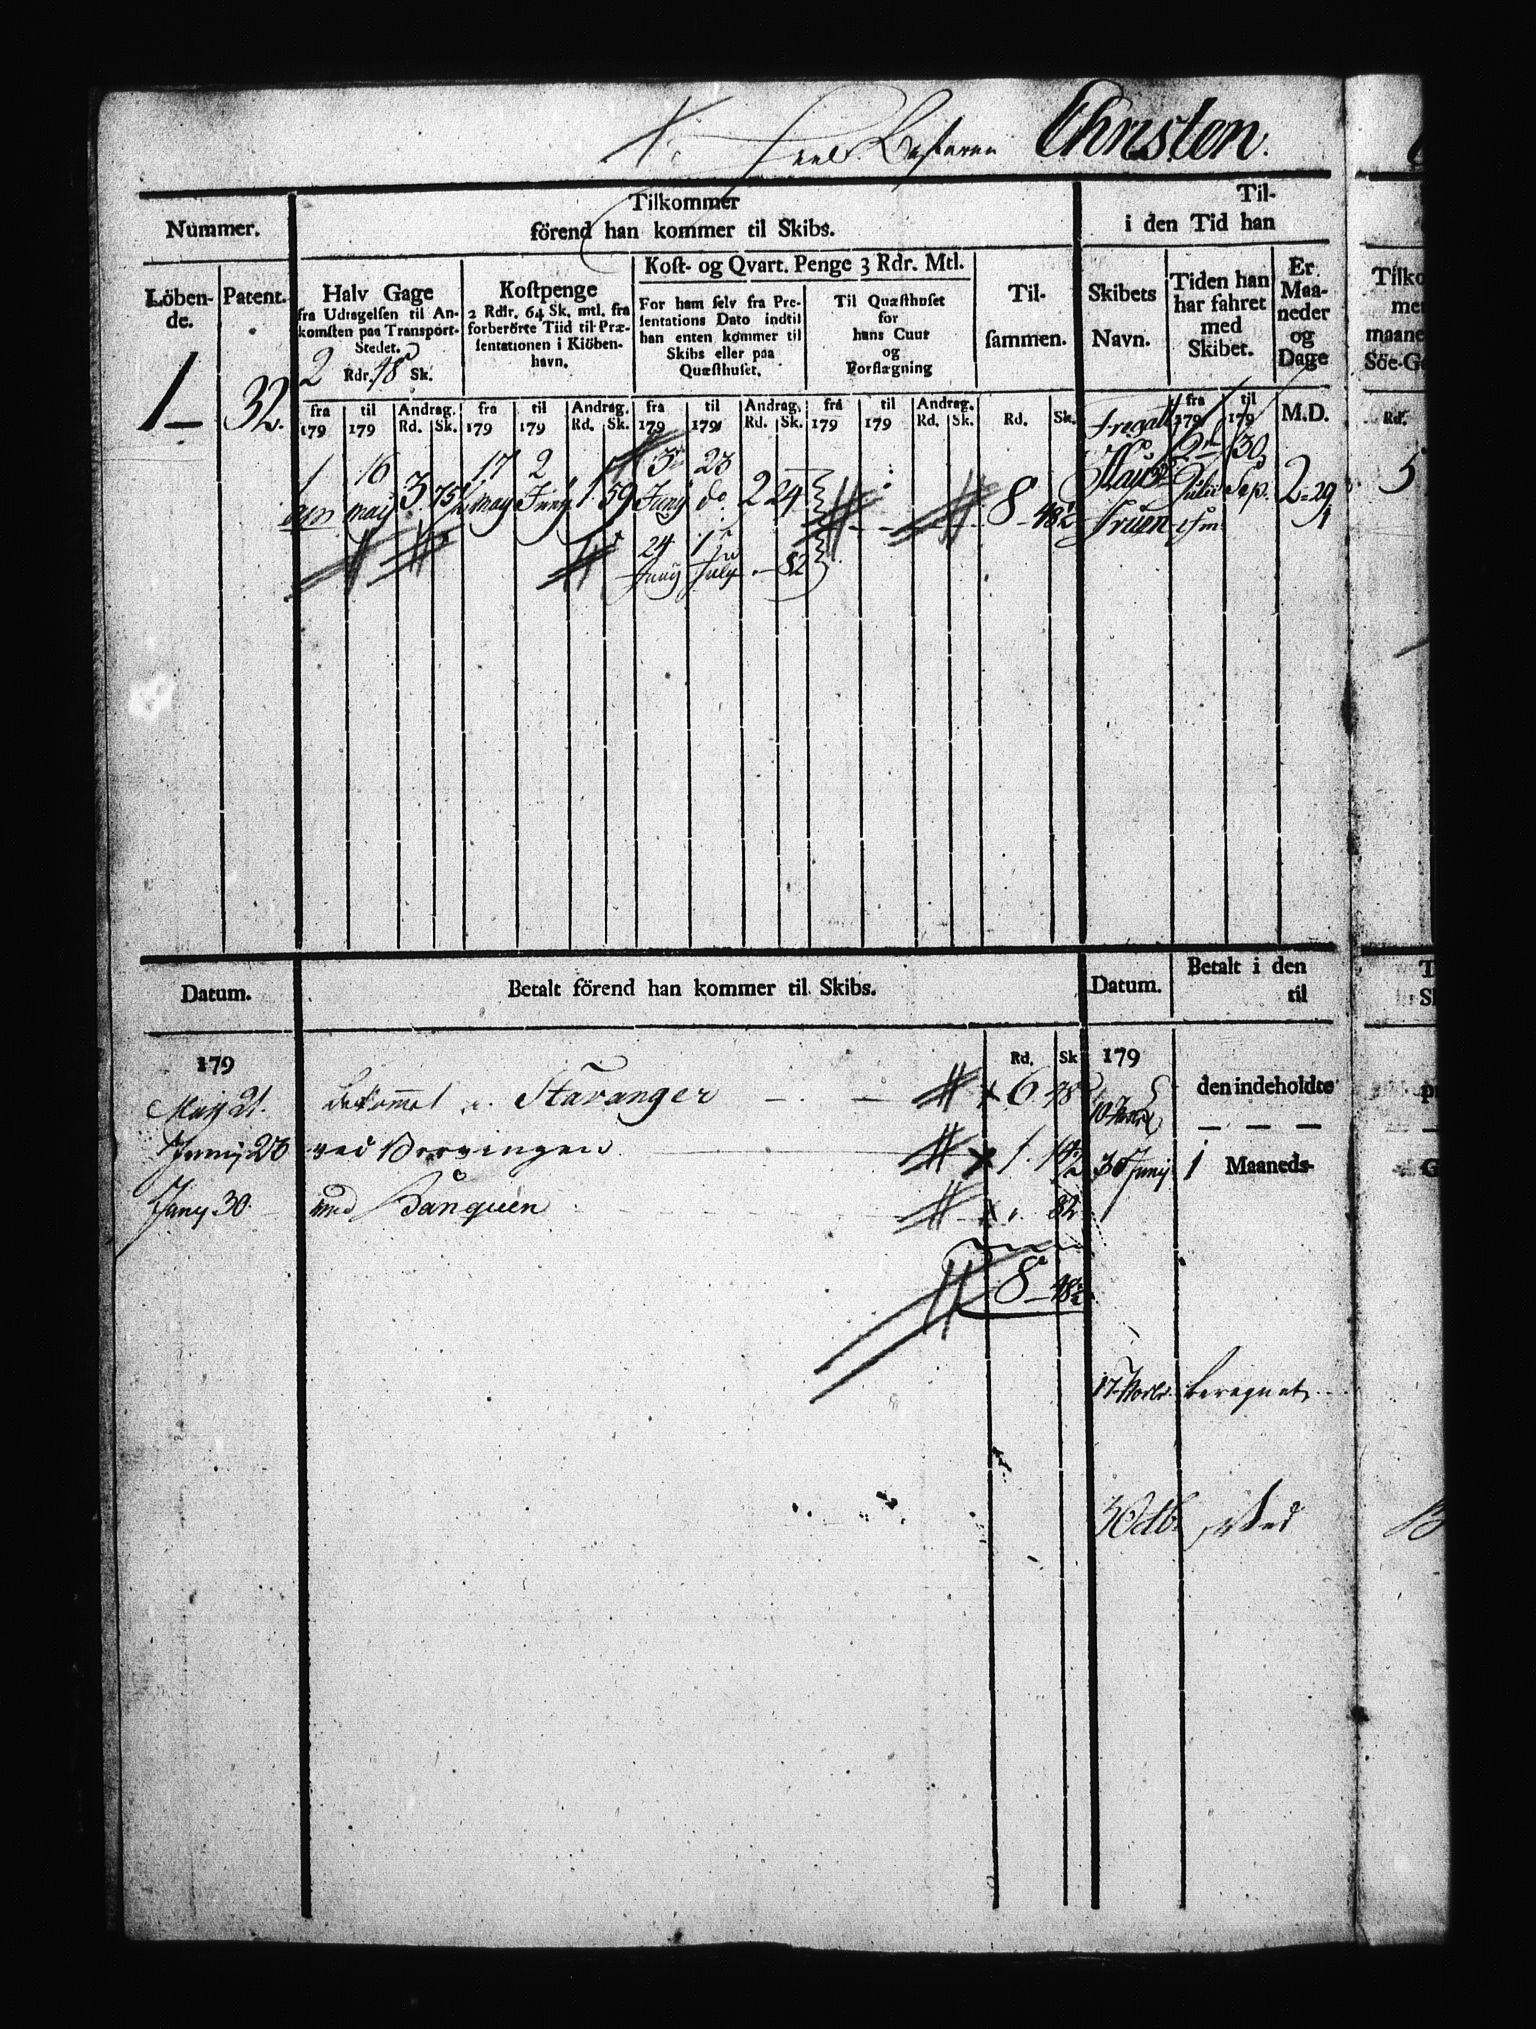 Christen.
Nummer.
Tilkommer
förend han kommer til Skibs.
Til-
i den Tid han
Löben-
de.
Patent.
Halv Gage
fra Udtagelsen til An-
komsten paa Transport-
Stedet.
2 Rdr. 48 Sk.
Kostpenge
2 Rdlr. 64 Sk. mtl. fra
forberörte Tiid til Præ-
sentationen i Kiöben-
havn.
Kost- og Qvart. Penge 3 Rdr. Mtl.
For ham selv fra Pre-
sentations Dato indtil
han enten kommer til
Skibs eller paa
Quæsthuset.
Til Quæsthuset
for
hans Cuur
og
Forflægning
Til-
sammen.
Skibets
Navn.
Tiden han
har fahret
med
Skibet.
Er
Maa-
neder
og
Dage
Tilko
me
maane
Söe-G
1 32.
fra 179 til 179 Andrag. Rd. Sk. fra 179 til 179 Andrag. Rd. Sk. fra 179 til 179 Andrag. Rd. Sk. fra 179 til 179 Andrag. Rd. Sk. Rd. Sk. fra 179 til 179 M.D. Rd.
1 16 May 3 75½ 17 May 2 Juny 1 59 3 Juny 23 do 2 24 8 48½
Fregatt
Hausf
Fruen
2 July 30 Sep. 2 29 5
24 Juny 1 July 32
Datum.
Betalt förend han kommer til Skibs.
Datum.
Betalt i den
til
179 Rd. Sk 179
May 21. Bekommet i Stavanger 6 48
den indeholdte
Juny 23 ved Borringen 1 14½ 30 Juny 1 Maaneds-
Juny 30. ved Banquen 32
8 48½
17 Novbr beregnet
3 Octb